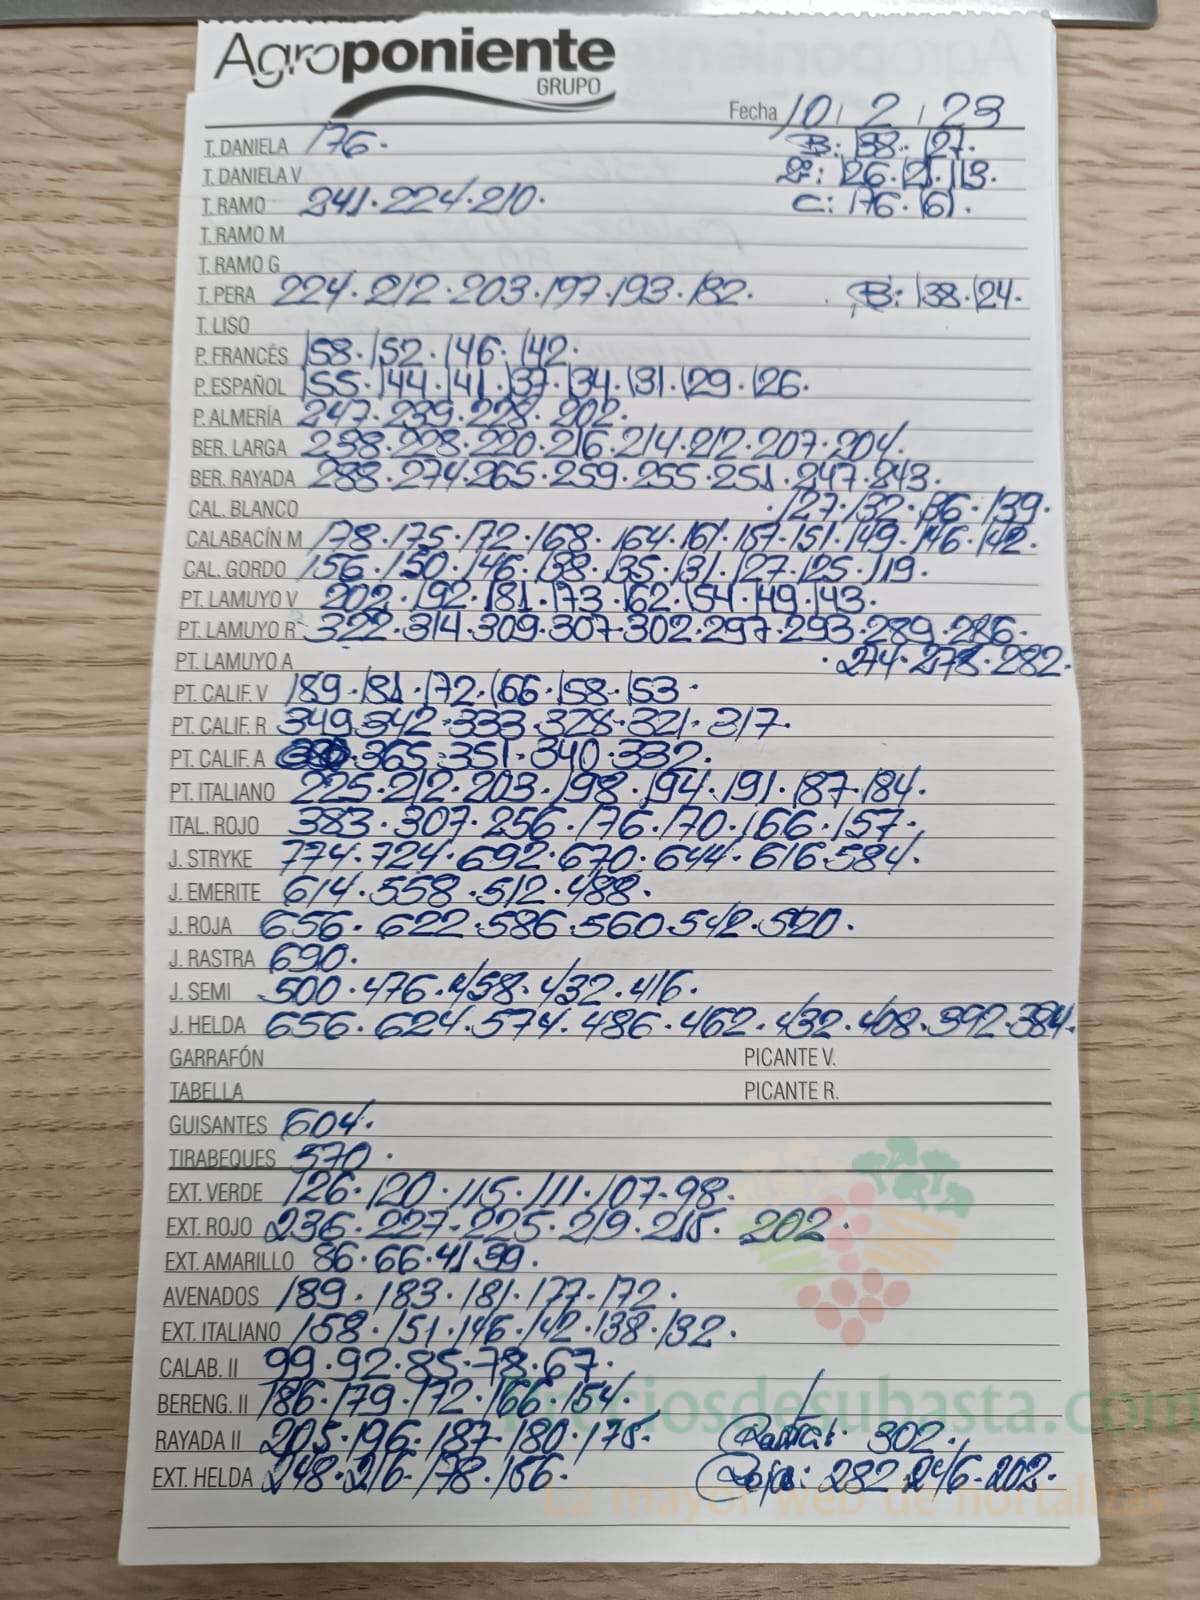 Agroponiente
GRUPO
Fecha 10 / 2 / 23
T. DANELA 176. B: 138. 127.
T. DANIELA V 2ª: 126. 121. 113.
T. RAMO 241. 224. 210. C: 176. 161.
T. RAMO M
T. RAMO G
T. PERA 224. 212. 203. 197. 193. 182. B: 138. 124.
T. LISO
P. FRANCÉS 158. 152. 146. 142.
P. ESPAÑOL 155. 144. 141. 137. 134. 131. 129. 126.
P. ALMERÍA 247. 239. 228. 202.
BER. LARGA 238. 228. 220. 216. 214. 212. 207. 204.
BER. RAYADA 288. 274. 265. 259. 255. 251. 247. 243.
CAL. BLANCO . 127. 132. 136. 139.
CALABACÍN M 178. 175. 172. 168. 164. 161. 157. 151. 149. 146. 142.
CAL. GORDO 156. 150. 146. 138. 135. 131. 127. 125. 119.
PT. LAMUYO V 202. 192. 181. 173. 162. 154. 149. 143.
PT. LAMUYO R 322. 314. 309. 307. 302. 297. 293. 289. 286.
PT. LAMUYO A . 274. 278. 282.
PT. CALIF. V 189. 181. 172. 166. 158. 153.
PT. CALIF. R 349. 342. 333. 328. 321. 317.
PT. CALIF. A 365. 351. 340. 332.
PT. ITALIANO 225. 212. 203. 198. 194. 191. 187. 184.
ITAL. ROJO 383. 307. 256. 176. 170. 166. 157.
J. STRYKE 774. 724. 692. 670. 644. 616. 584.
J. EMERITE 614. 558. 512. 488.
J. ROJA 656. 622. 586. 560. 542. 520.
J. RASTRA 690.
J. SEMI 500. 476. 458. 432. 416.
J. HELDA 656. 624. 574. 486. 462. 432. 408. 392. 384.
GARRAFÓN PICANTE V.
TABELLA PICANTE R.
GUISANTES 604.
TIRABEQUES 570.
EXT. VERDE 126. 120. 115. 111. 107. 98.
EXT. ROJO 236. 227. 225. 219. 215. 202.
EXT. AMARILLO 86. 66. 41. 39.
AVENADOS 189. 183. 181. 177. 172.
EXT. ITALIANO 158. 151. 146. 142. 138. 132.
CALAB. II 99. 92. 85. 78. 67.
BERENG. II 186. 179. 172. 166. 154.
preciosdesubasta.com
RAYADA II 205. 196. 187. 180. 175. 302.
EXT. HELDA 248. 216. 178. 156. Roja: 282. 246. 202.
La mayor web de hortalizas